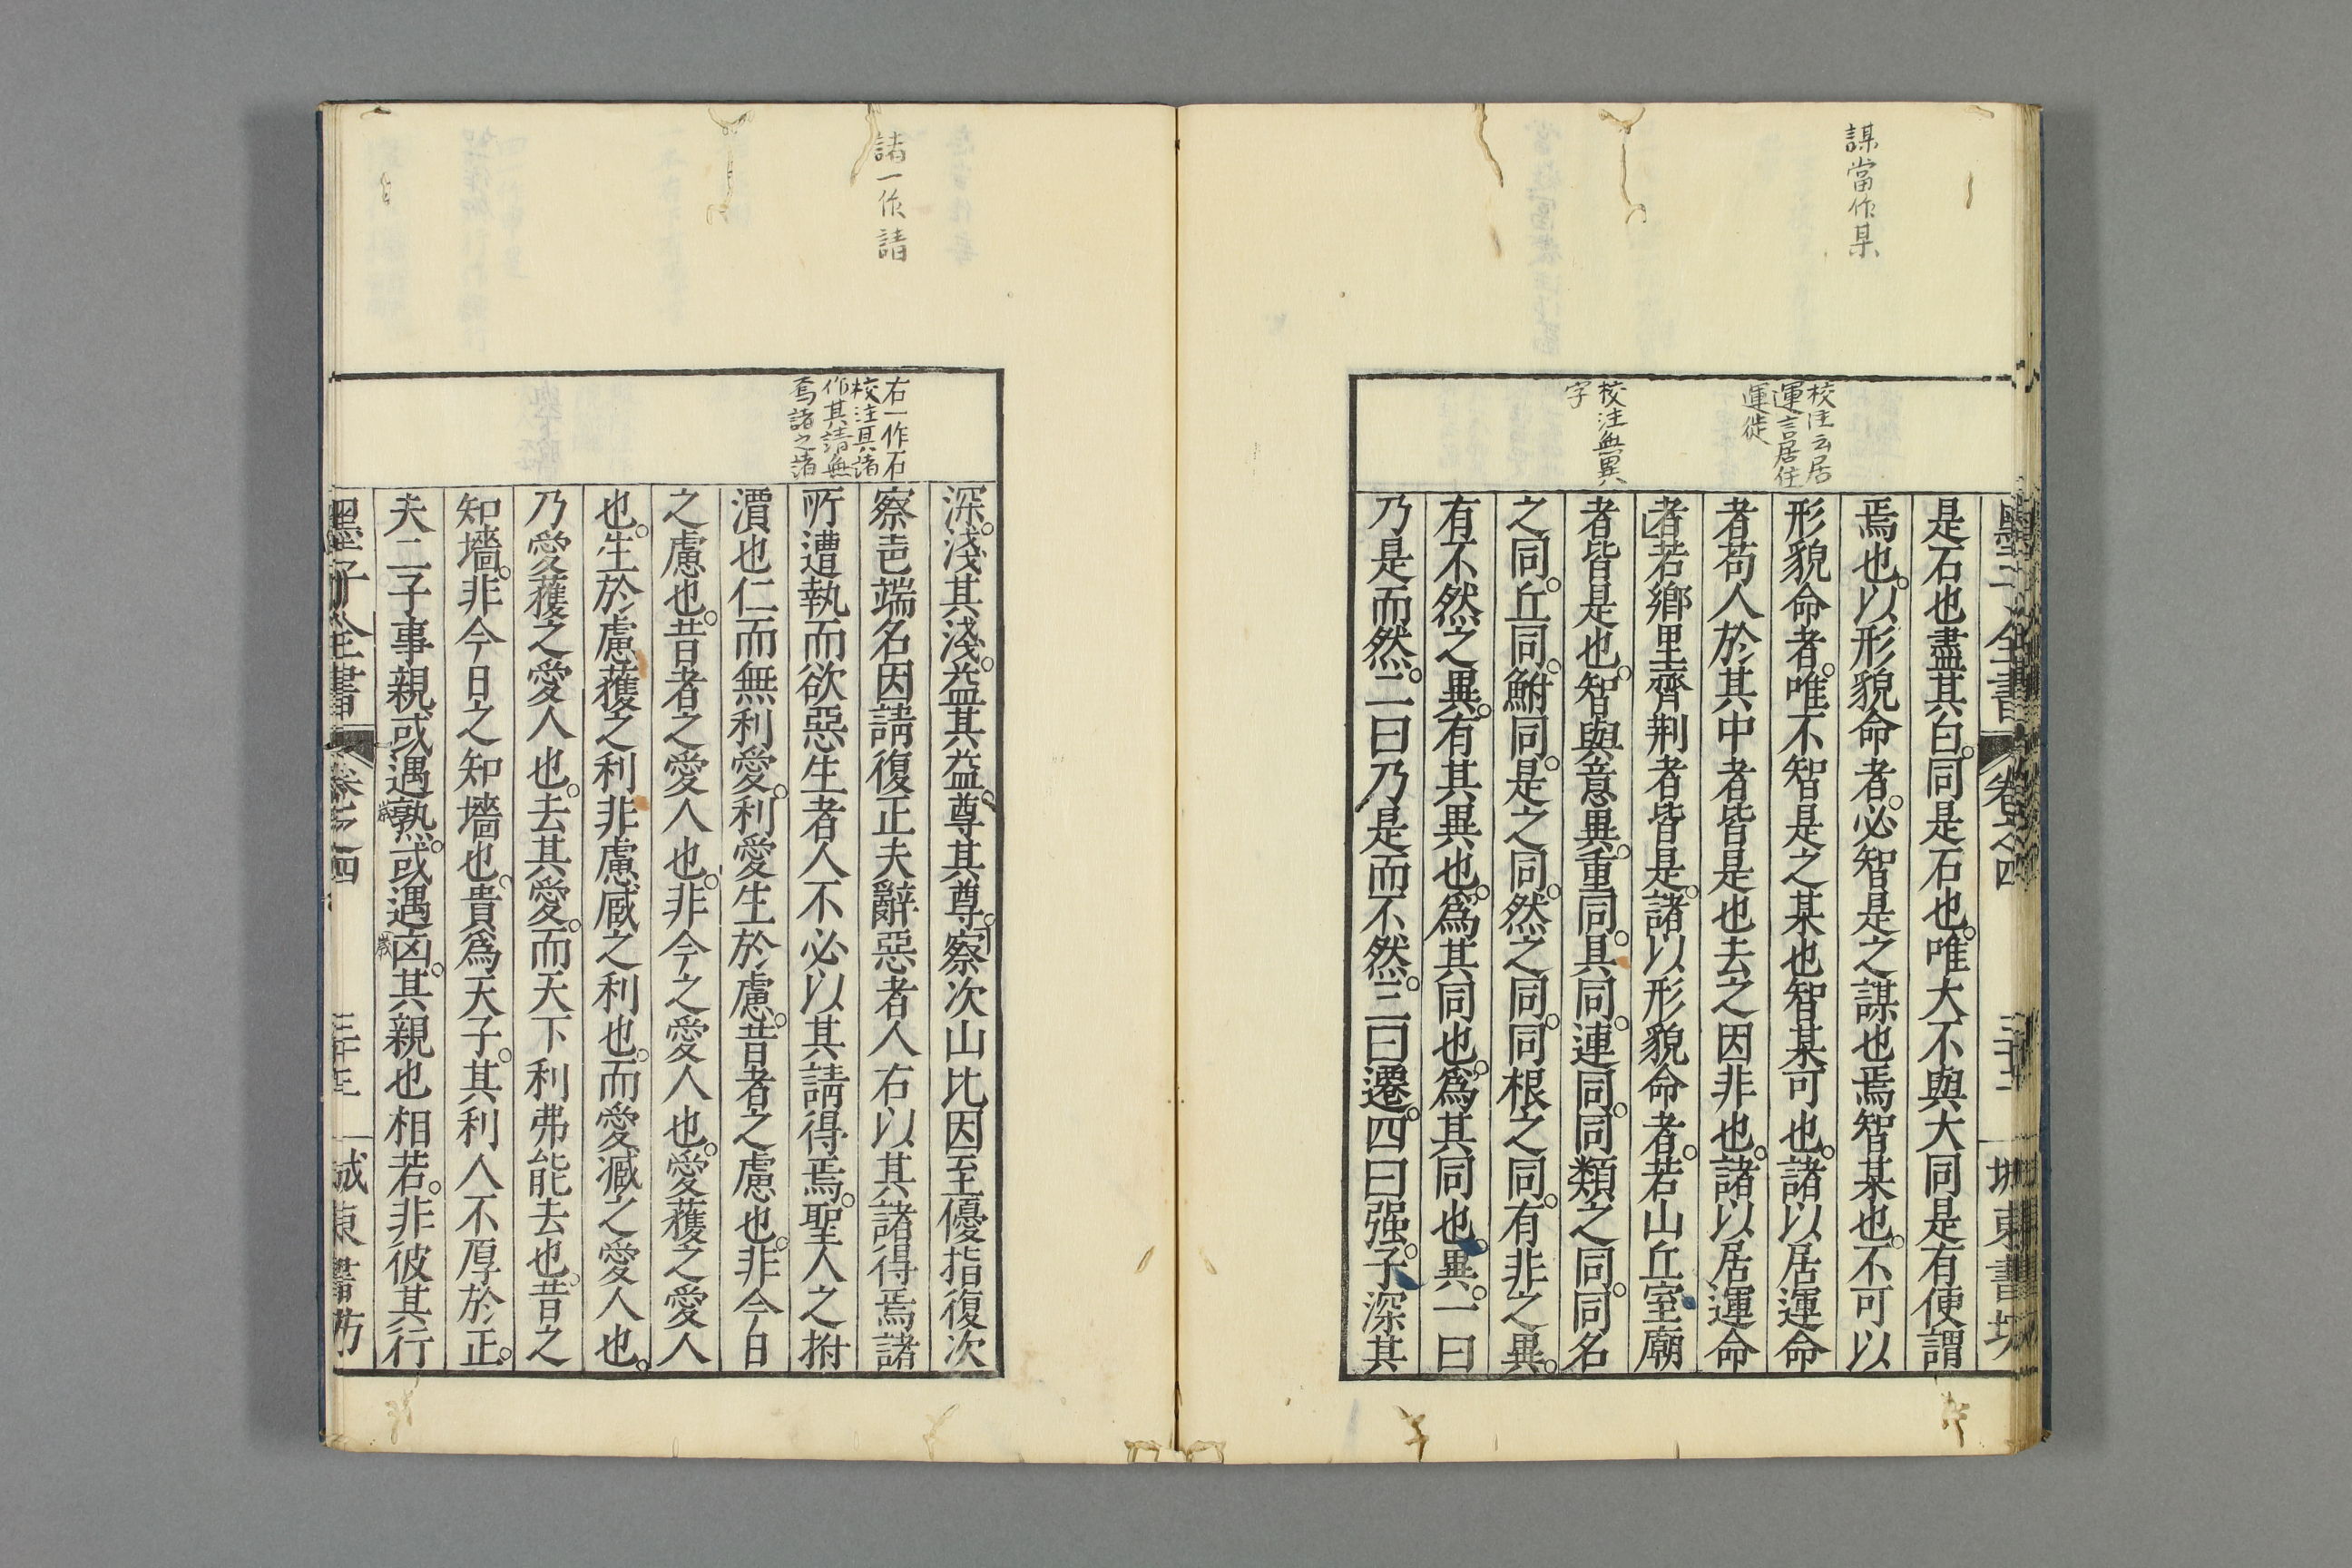 謀當作某
校注云居
運言居住
運徙
校注無異
字
是石也盡其白。同是石也。唯大不與大同是有便謂
焉也。以形貌命者。必智是之謀也焉智某也。不可以
形貌命者。唯不智是之某也智某可也。諸以居運命
者苟人於其中者皆是也去之因非也。諸以居運命
者若鄉里齊荆者皆是。諸以形貌命者。若山丘室廟
者皆是也。智與意異。重同。具同。連同。同類之同。同名
之同。丘同。鮒同。是之同。然之同。同根之同。有非之異。
有不然之異。有其異也。爲其同也。爲其同也。異。一曰
乃是而然。二曰乃是而不然。三曰遷。四曰强。子深其
諸一作請
右一作石
校注具諸
作其請無
焉諸之諸
深。淺其淺。益其益。尊其尊。察次山比因至優指復次
察㐌端名因請復正夫辭惡者人右以其諸得焉諸
所遭執而欲惡生者人不必以其請得焉。聖人之拊
㵊也仁而無利愛。利愛生於慮。昔者之慮也。非今日
之慮也。昔者之愛人也。非今之愛人也。愛蒦之愛人
也。生於慮蒦之利非慮臧之利也。而愛臧之愛人也。
乃愛蒦之愛人也。去其愛。而天下利弗能去也。昔之
知墻。非今日之知墻也。貴爲天子。其利人不厚於正。
夫二子事親或遇熟。歲或遇凶。歲其親也相若。非彼其行
墨子全書 卷之四 城東書坊